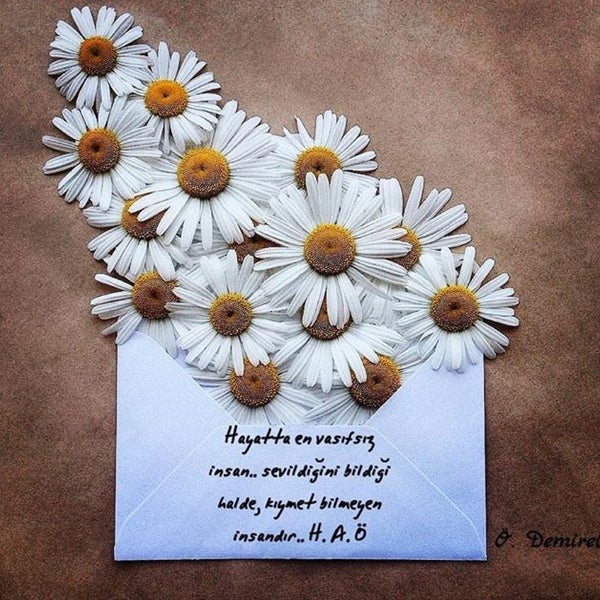 Hayatta en vasıfsız
insan.. sevildiğini bildiği
halde, kıymet bilmeyen
insandır.. H. A. Ö
Ö. Demirel